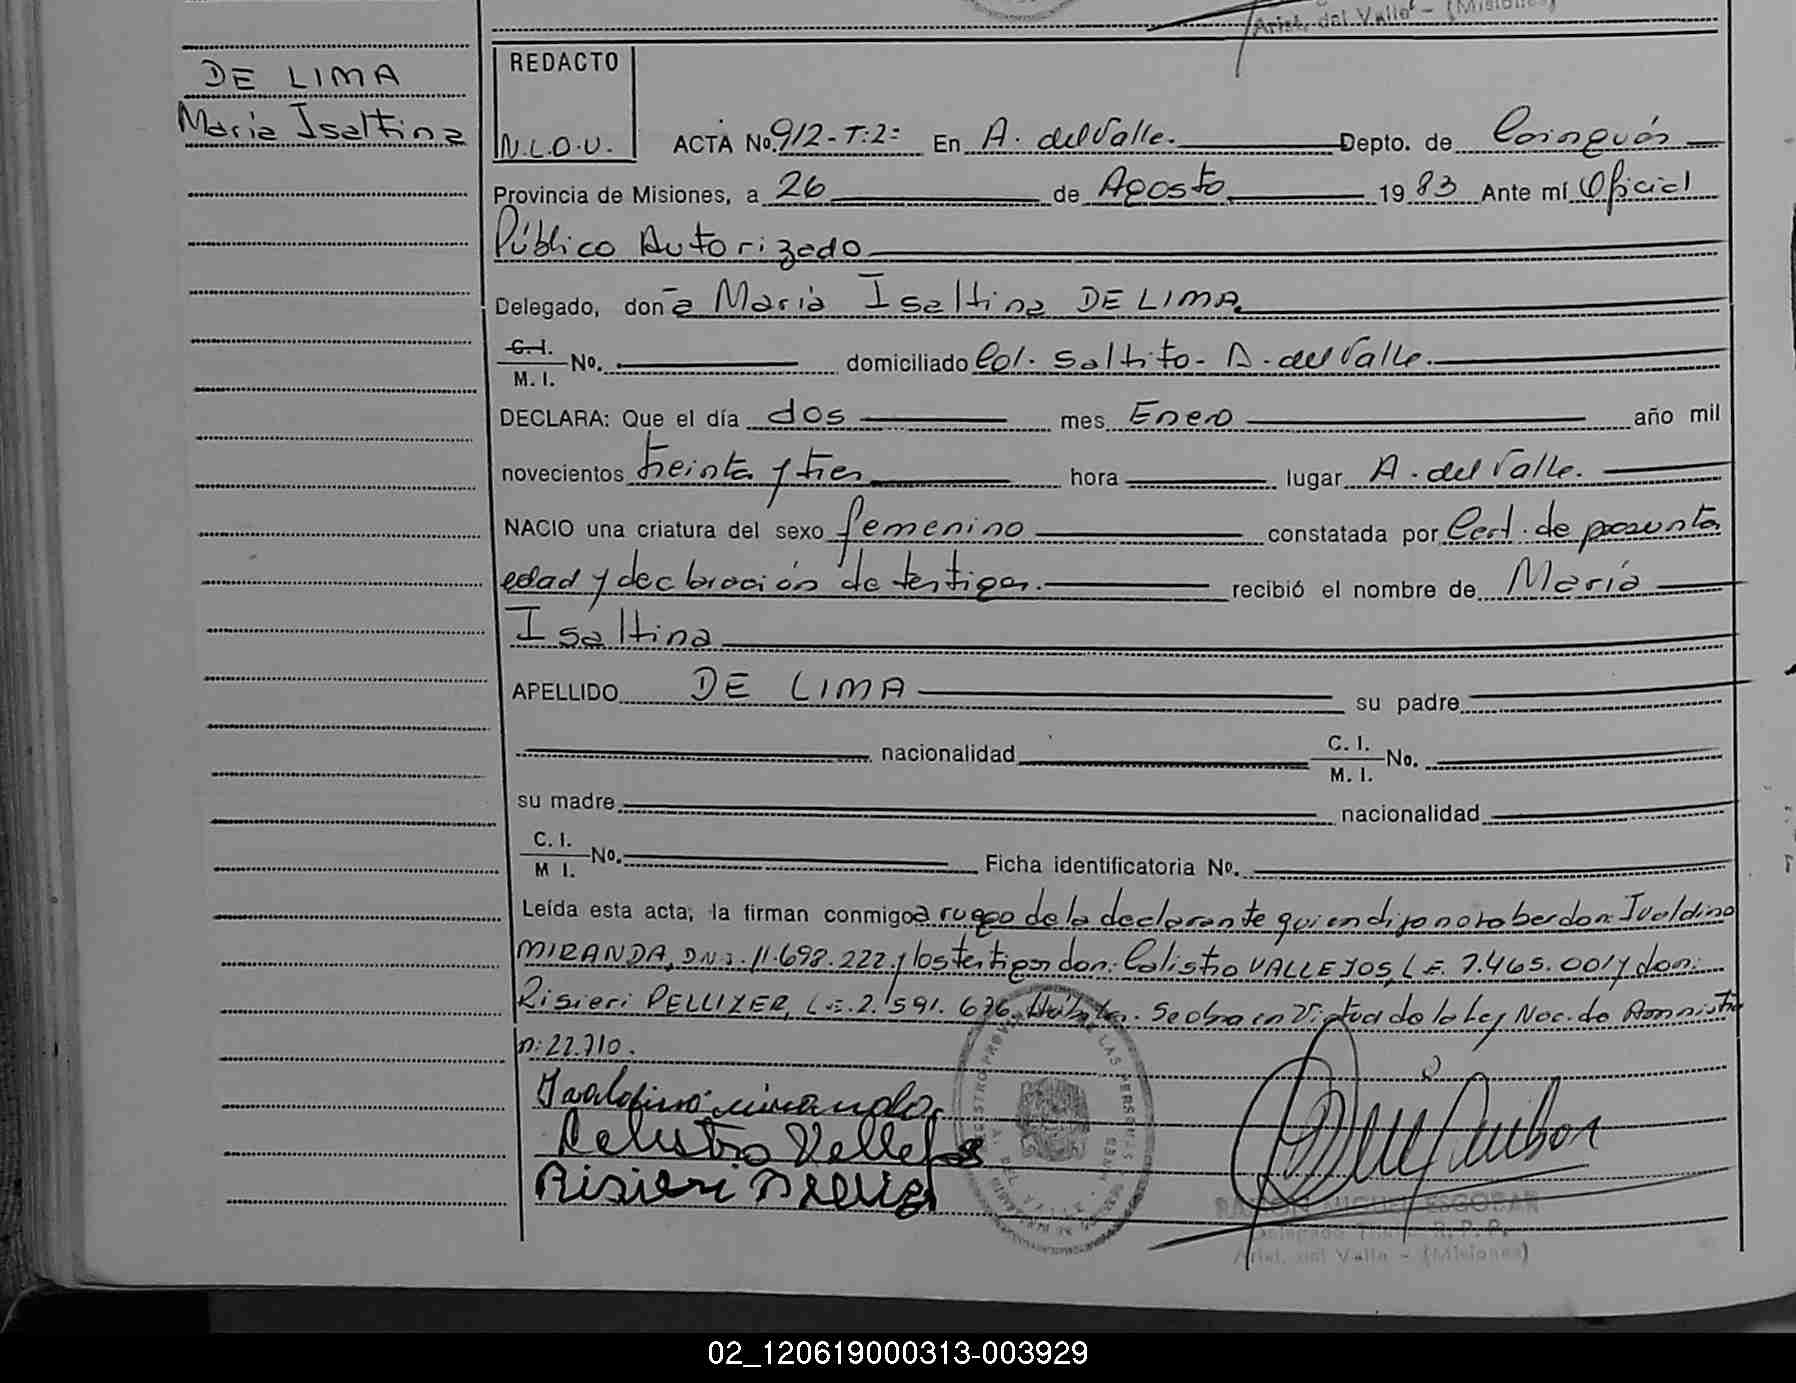 Arist. del Valle - (Misiones)
DE LIMA
Maria Isaltina
REDACTO
N.L.O.U.
ACTA No. 912-T:2: En A. del Valle. Depto. de Cainguás
Provincia de Misiones, a 26 de Agosto 1983 Ante mí Oficial
Público Autorizado
Delegado, don̄a María Isaltina DE LIMA.
C.I. M.I. No. domiciliado Col. Saltito - A. del Valle.
DECLARA: Que el día dos mes Enero año mil
novecientos treinta y tres hora lugar A. del Valle.
NACIO una criatura del sexo femenino constatada por Cert. de presunta
edad y declaración de testigos. recibió el nombre de María
Isaltina
APELLIDO DE LIMA su padre
nacionalidad C. I. M. I. No.
su madre nacionalidad
C. I. M I. No. Ficha identificatoria No.
Leída esta acta, la firman conmigo a ruego de la declarante quien dijo no saber don: Ivaldino
MIRANDA, D.N.I. 11.698.222 y los testigos don: Calistro VALLEJOS, L.E. 7.465.001 y don:
Risieri PELLIZER, L.E. 2.591.676 Hábiles. Se obra en Virtud de la Ley Nac. de Amnistía
n: 22.710.
Ivaldino miranda
Calistro Vallejos
Risieri
RAMON MIGUEL ESCOBAR
Delegado Titular R. P. P.
Arist. del Valle - (Misiones)
02_120619000313-003929